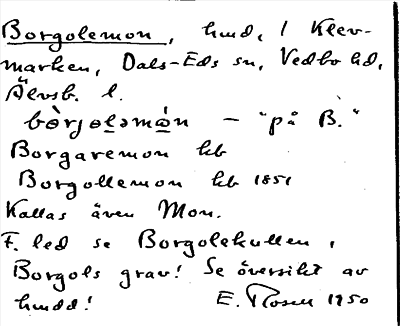 Borgolemon, hmd, i Klev-
marken, Dals-Eds sn, Vedbo hd,
Älvsb. l.
bòrjo̲lǝmá̲n – "på B."
Borgaremon hb
Borgollemon hb 1851
Kallas även Mon.
F. led se Borgolekullen,
Borgols grav! Se översikt av
hmdd!
E. Rosell 1950